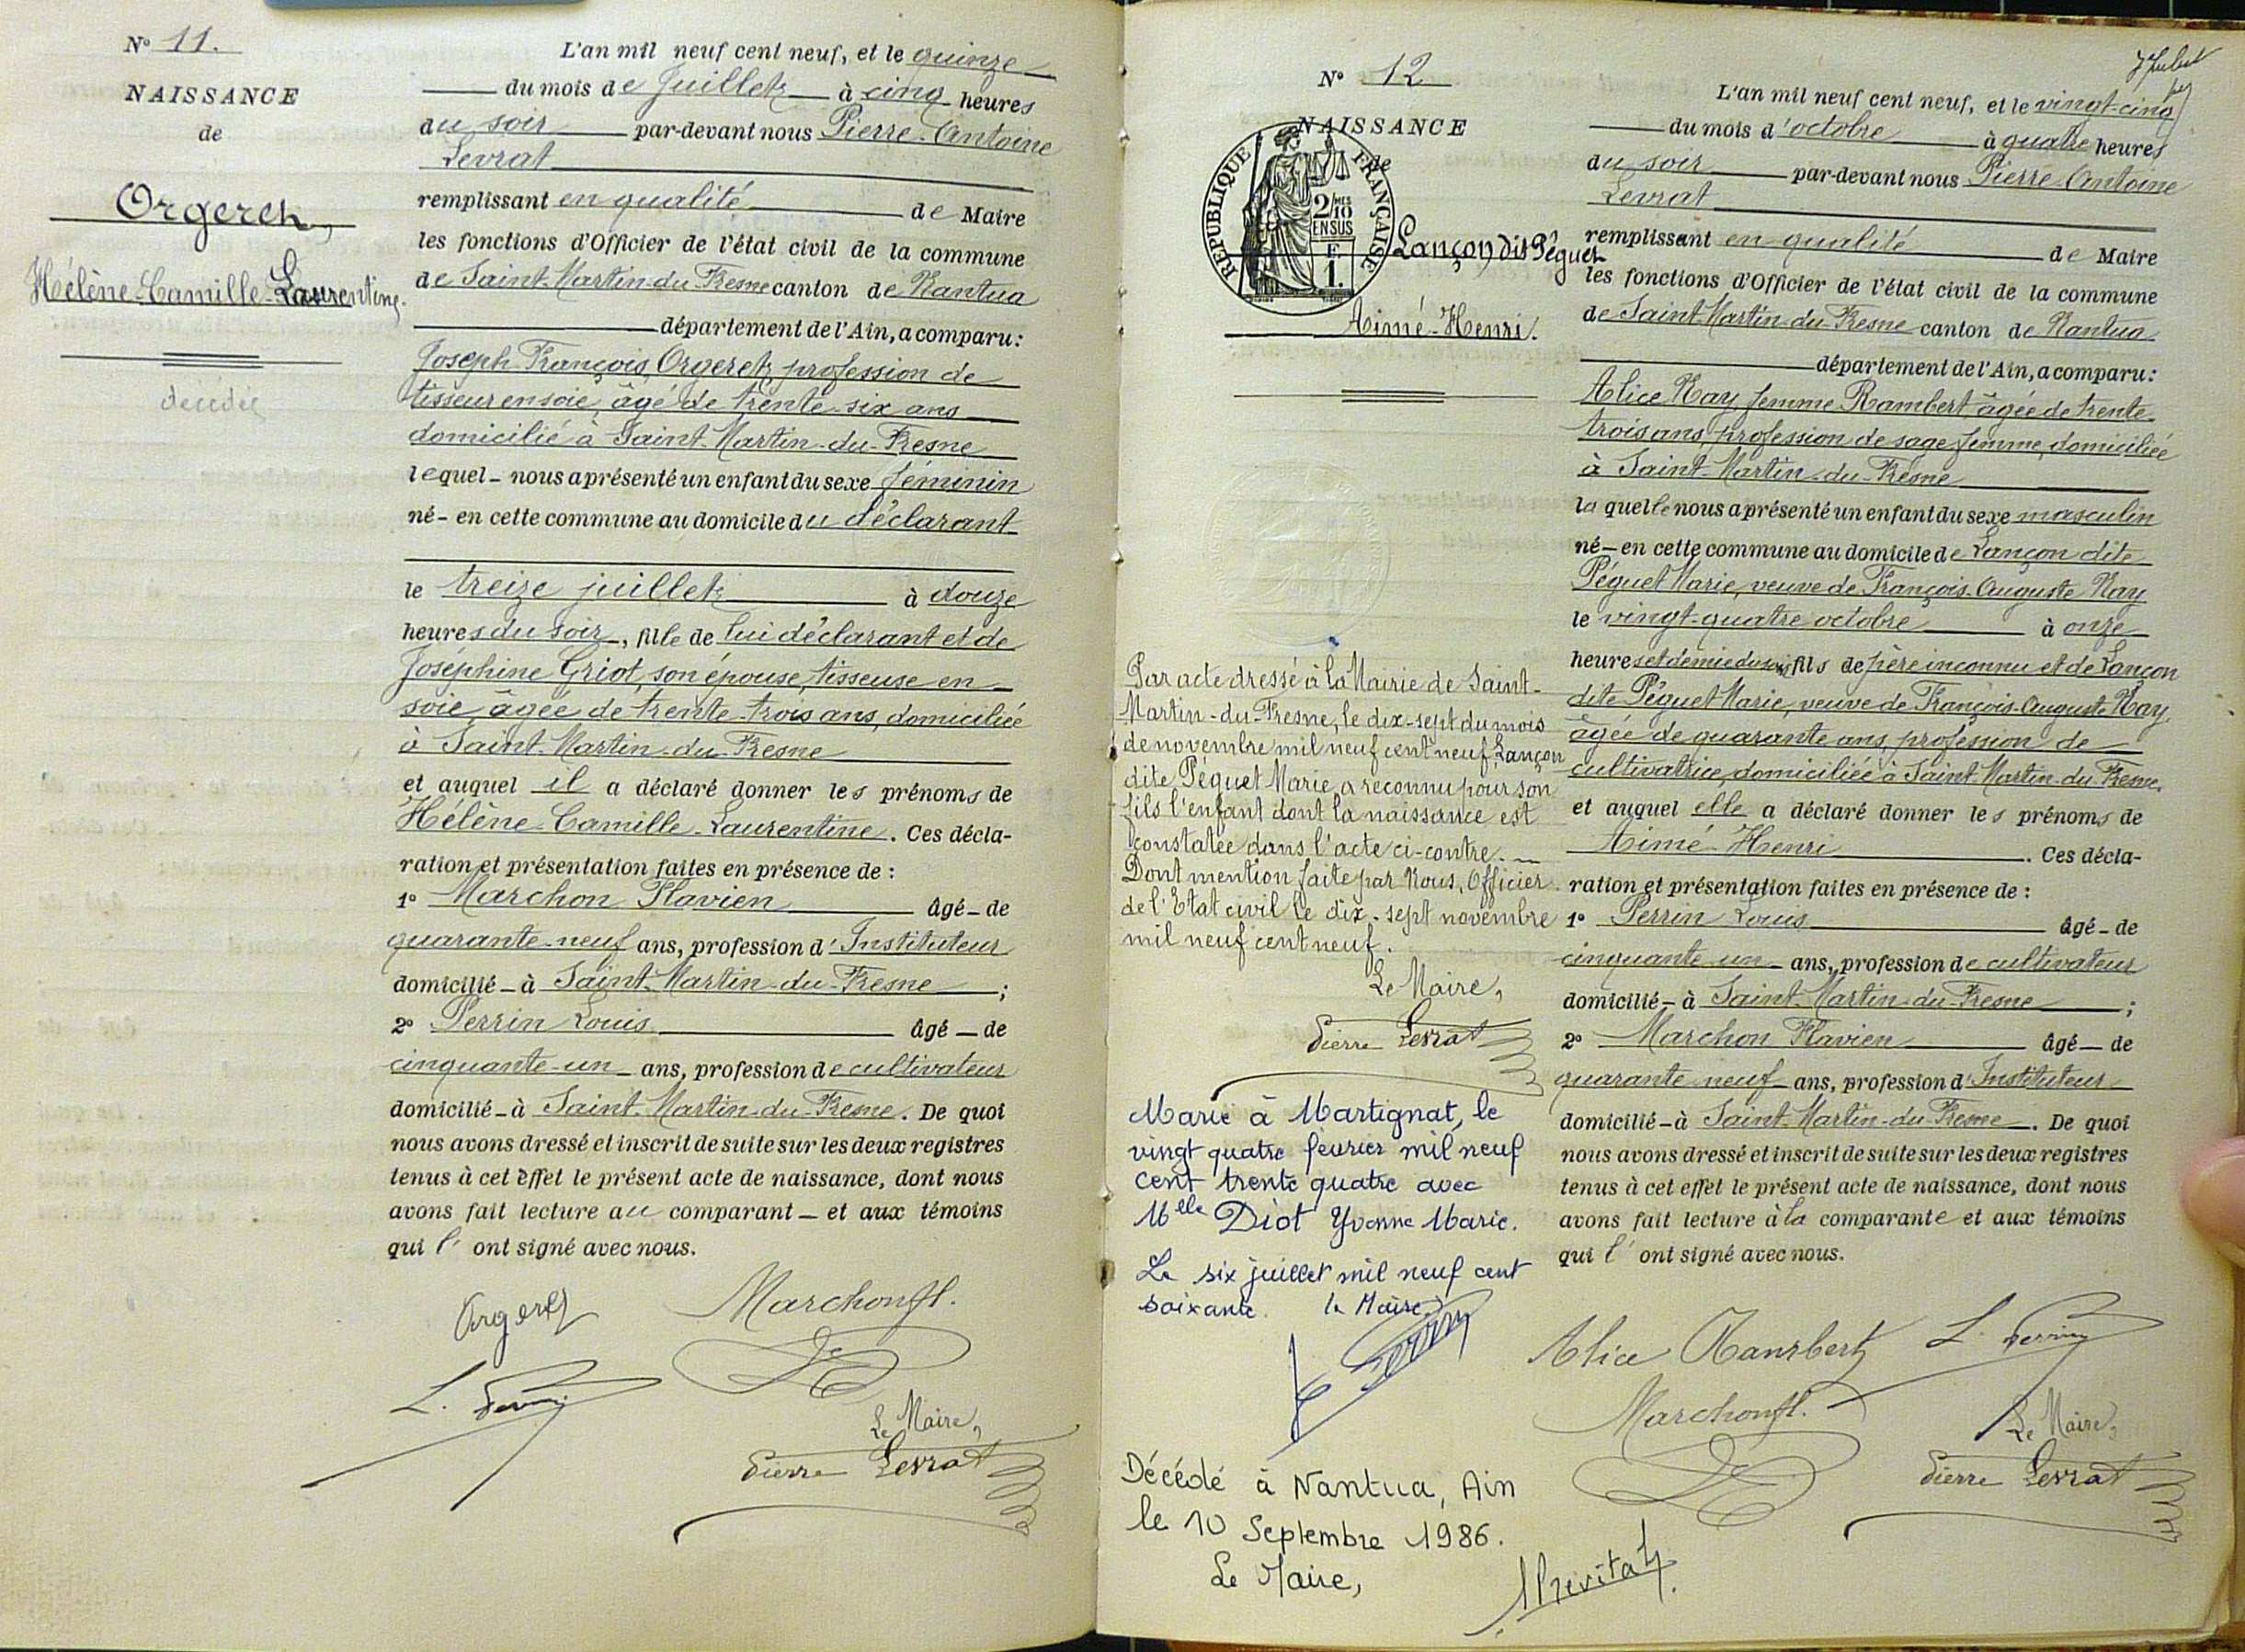 N° 11.
NAISSANCE
de
Orgeret,
Hélène-Camille-Laurentine.
décédée
L'an mil neuf cent neuf, et le quinze
du mois de Juillet à cinq heures
du soir par-devant nous Pierre-Antoine
Levrat
remplissant en qualité de Maire
les fonctions d'Officier de l'état civil de la commune
de Saint-Martin-du-Fresne canton de Nantua
département de l'Ain, a comparu :
Joseph-François Orgeret, profession de
tisseur en soie, âgé de trente-six ans
domicilié à Saint-Martin-du-Fresne
lequel nous a présenté un enfant du sexe féminin
né en cette commune au domicile du déclarant
le treize juillet à douze
heures du soir, fille de lui déclarant et de
Joséphine Griot, son épouse, tisseuse en
soie, âgée de trente-trois ans, domiciliée
à Saint-Martin-du-Fresne
et auquel il a déclaré donner les prénoms de
Hélène-Camille-Laurentine. Ces décla-
ration et présentation faites en présence de :
1° Marchon Flavien âgé de
quarante-neuf ans, profession d'Instituteur
domicilié à Saint-Martin-du-Fresne ;
2° Perrin Louis âgé de
cinquante-un ans, profession de cultivateur
domicilié à Saint-Martin-du-Fresne. De quoi
nous avons dressé et inscrit de suite sur les deux registres
tenus à cet effet le présent acte de naissance, dont nous
avons fait lecture au comparant et aux témoins
qui l'ont signé avec nous.
Orgeret Marchon fl.
L. Perrin
Le Maire,
Pierre Levrat
N° 12
NAISSANCE
de
RÉPUBLIQUE FRANÇAISE
2/10MES
EN SUS
F.
1.
Lançon dit Péguet
Aimé-Henri.
Par acte dressé à la Mairie de Saint-
Martin-du-Fresne, le dix-sept du mois
de novembre mil neuf cent neuf, Lançon
dite Péguet Marie, a reconnu pour son
fils l'enfant dont la naissance est
constatée dans l'acte ci-contre.
Dont mention faite par Nous, Officier
de l'Etat civil le dix-sept novembre
mil neuf cent neuf.
Le Maire,
Pierre Levrat
Marié à Martignat, le
vingt quatre février mil neuf
cent trente quatre avec
Melle Diot Yvonne Marie.
Le six juillet mil neuf cent
soixante. le Maire
Décédé à Nantua, Ain
le 10 Septembre 1986.
Le Maire,
L'an mil neuf cent neuf, et le vingt-cinq
du mois d'octobre à quatre heures
du soir par-devant nous Pierre-Antoine
Levrat
remplissant en qualité de Maire
les fonctions d'Officier de l'état civil de la commune
de Saint-Martin-du-Fresne canton de Nantua
département de l'Ain, a comparu :
Alice Nay femme Rambert âgée de trente-
trois ans, profession de sage femme, domiciliée
à Saint-Martin-du-Fresne
la quelle nous a présenté un enfant du sexe masculin
né en cette commune au domicile de Lançon dite
Péguet Marie, veuve de François-Auguste Nay
le vingt-quatre octobre à onze
heures et demie du soir, fils de père inconnu et de Lançon
dite Péguet Marie, veuve de François-Auguste Nay,
âgée de quarante ans, profession de
cultivatrice, domiciliée à Saint-Martin-du-Fresne.
et auquel elle a déclaré donner les prénoms de
Aimé-Henri. Ces décla-
ration et présentation faites en présence de :
1° Perrin Louis âgé de
cinquante-un ans, profession de cultivateur
domicilié à Saint-Martin-du-Fresne ;
2° Marchon Flavien âgé de
quarante-neuf ans, profession d'Instituteur
domicilié à Saint-Martin-du-Fresne. De quoi
nous avons dressé et inscrit de suite sur les deux registres
tenus à cet effet le présent acte de naissance, dont nous
avons fait lecture à la comparante et aux témoins
qui l'ont signé avec nous.
Alice Rambert L. Perrin
Marchon fl.
Le Maire,
Pierre Levrat